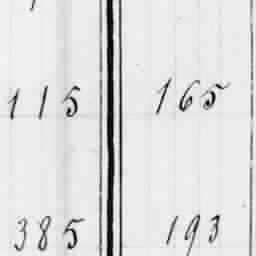 115 165
385 193